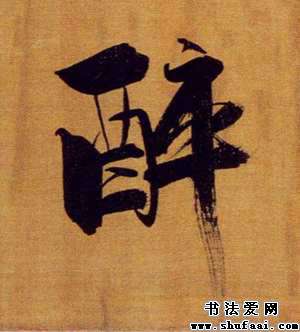 醉
书法爱网
www.shufaai.com